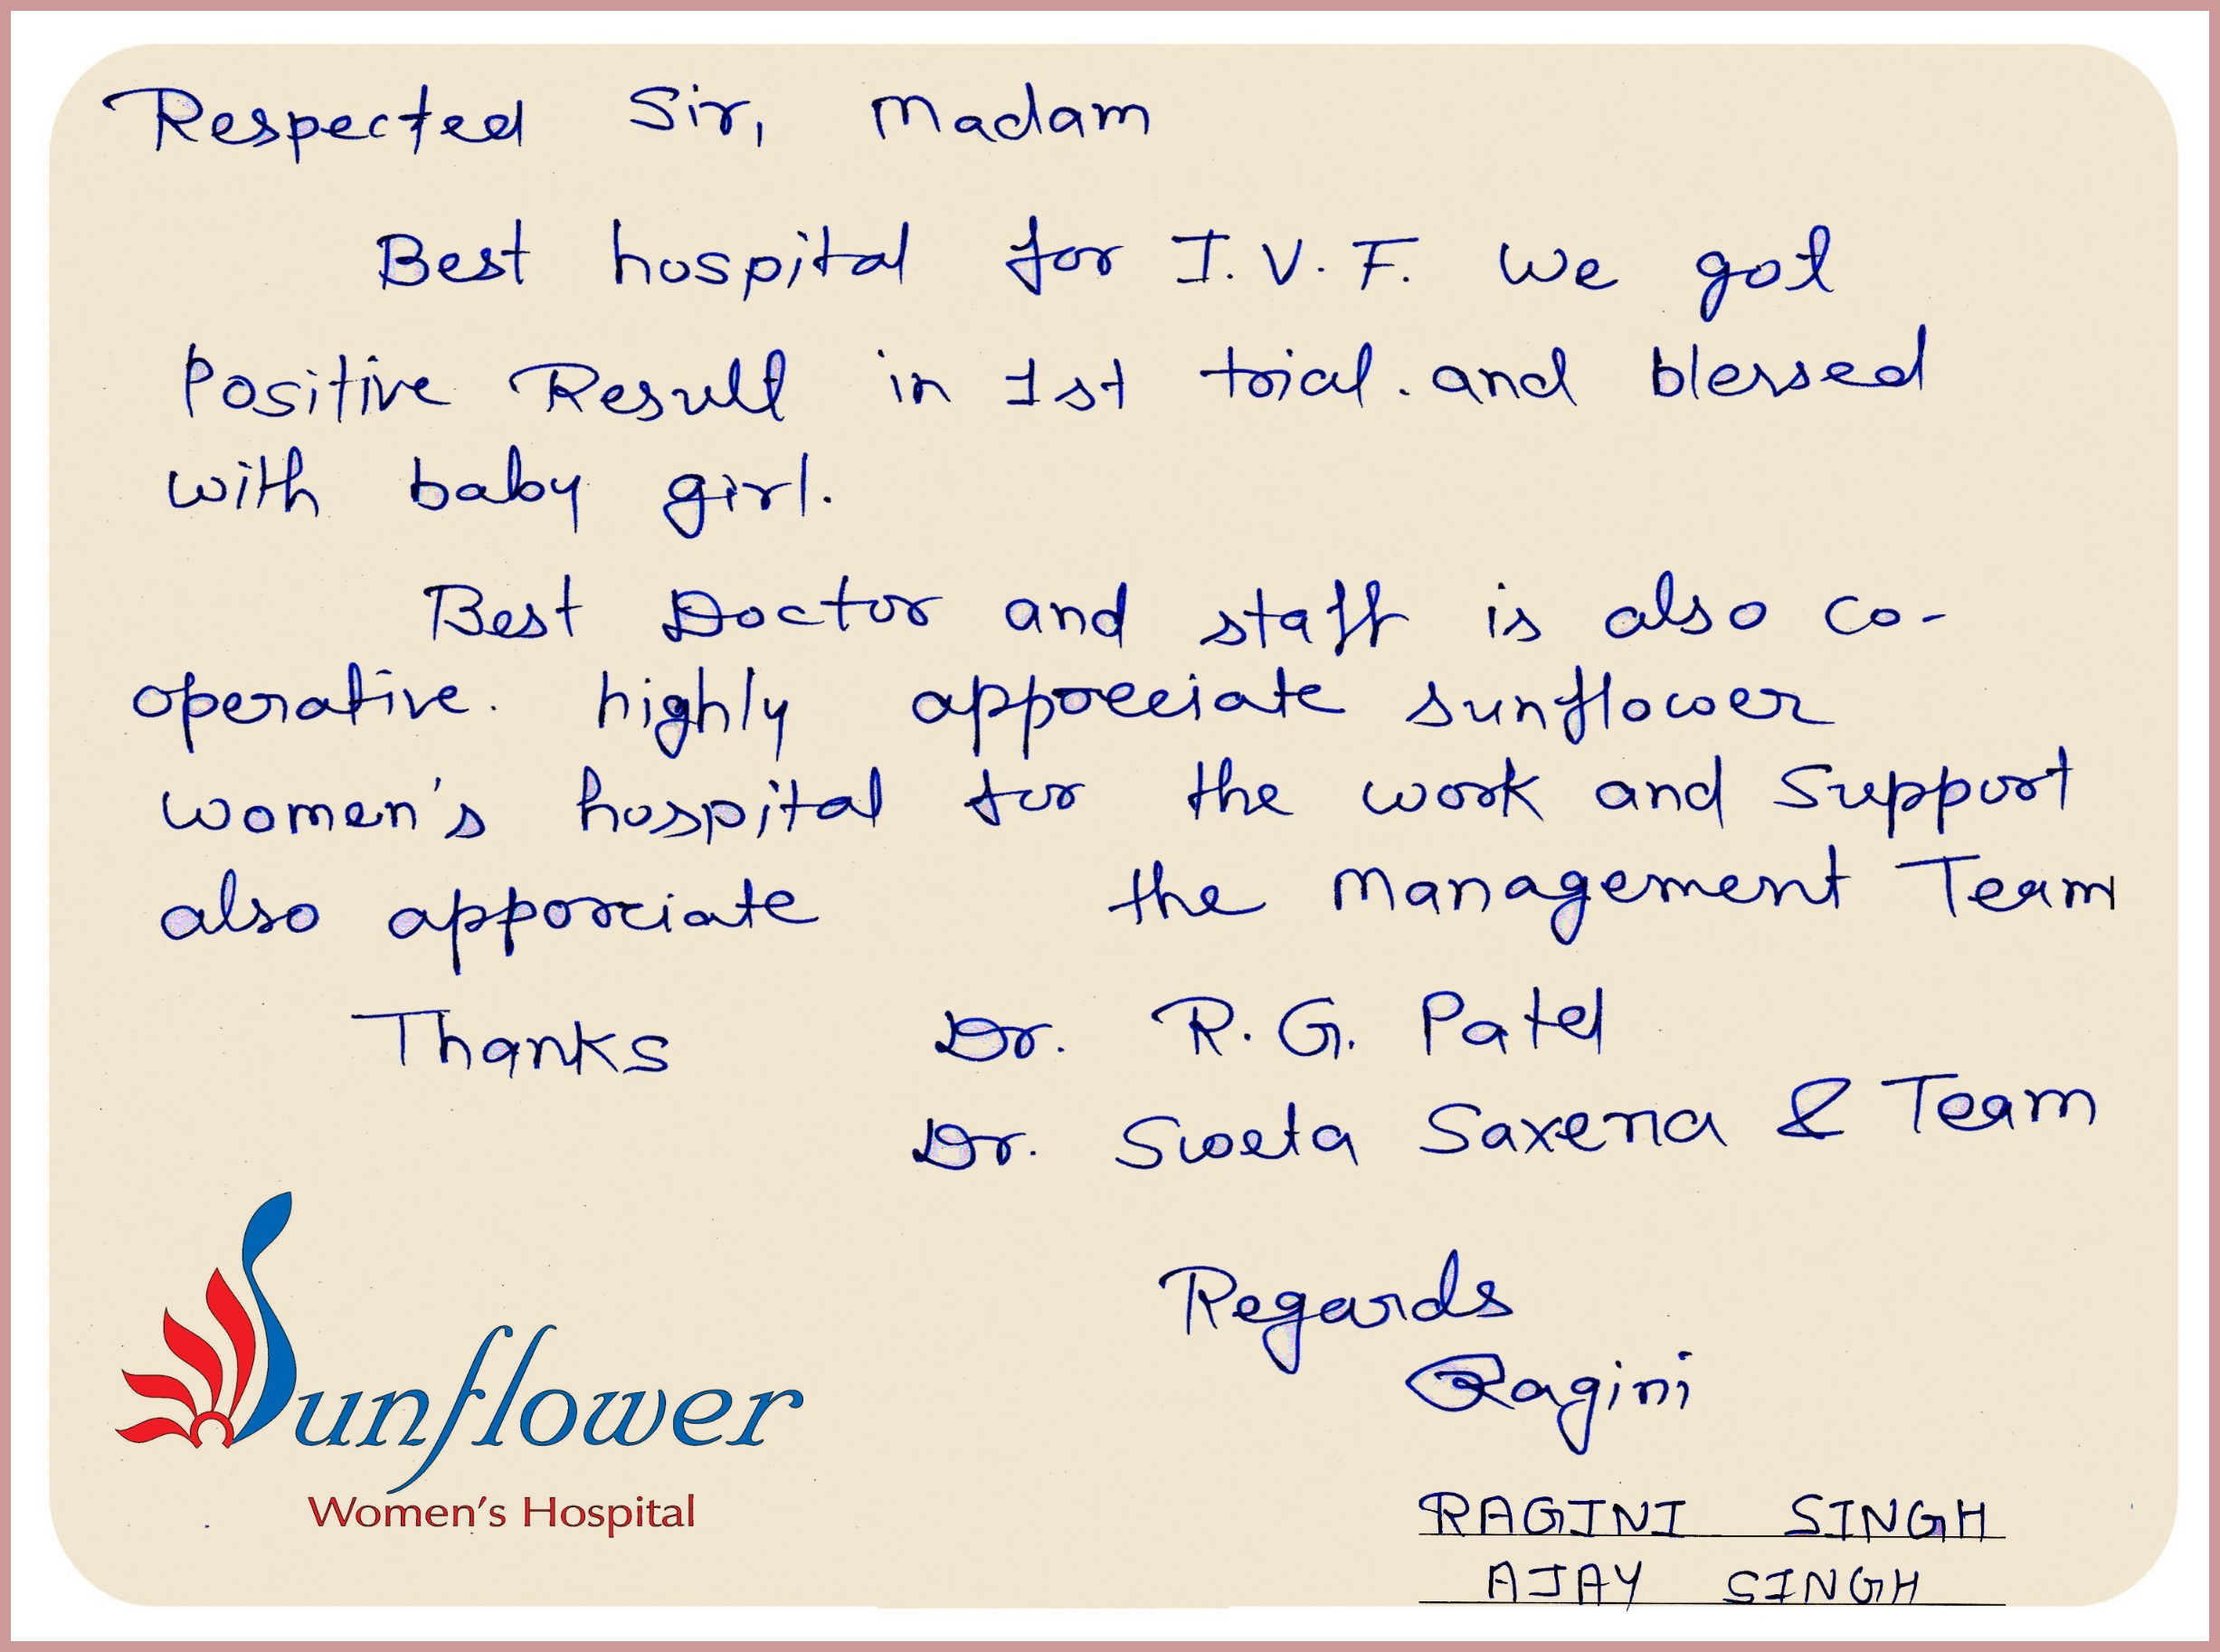 Respected Sir, Madam
Best hospital for I.V.F. we got
Positive Result in 1st trial. and blessed
with baby girl.
Best Doctor and staff is also co-
operative. highly appreciate sunflower
women's hospital for the work and Support
also apporciate the Management Team
Thanks Dr. R.G. Patel
Dr. Sweta Saxena & Team
Regards
Ragini
RAGINI SINGH
AJAY SINGH
Sunflower
Women's Hospital